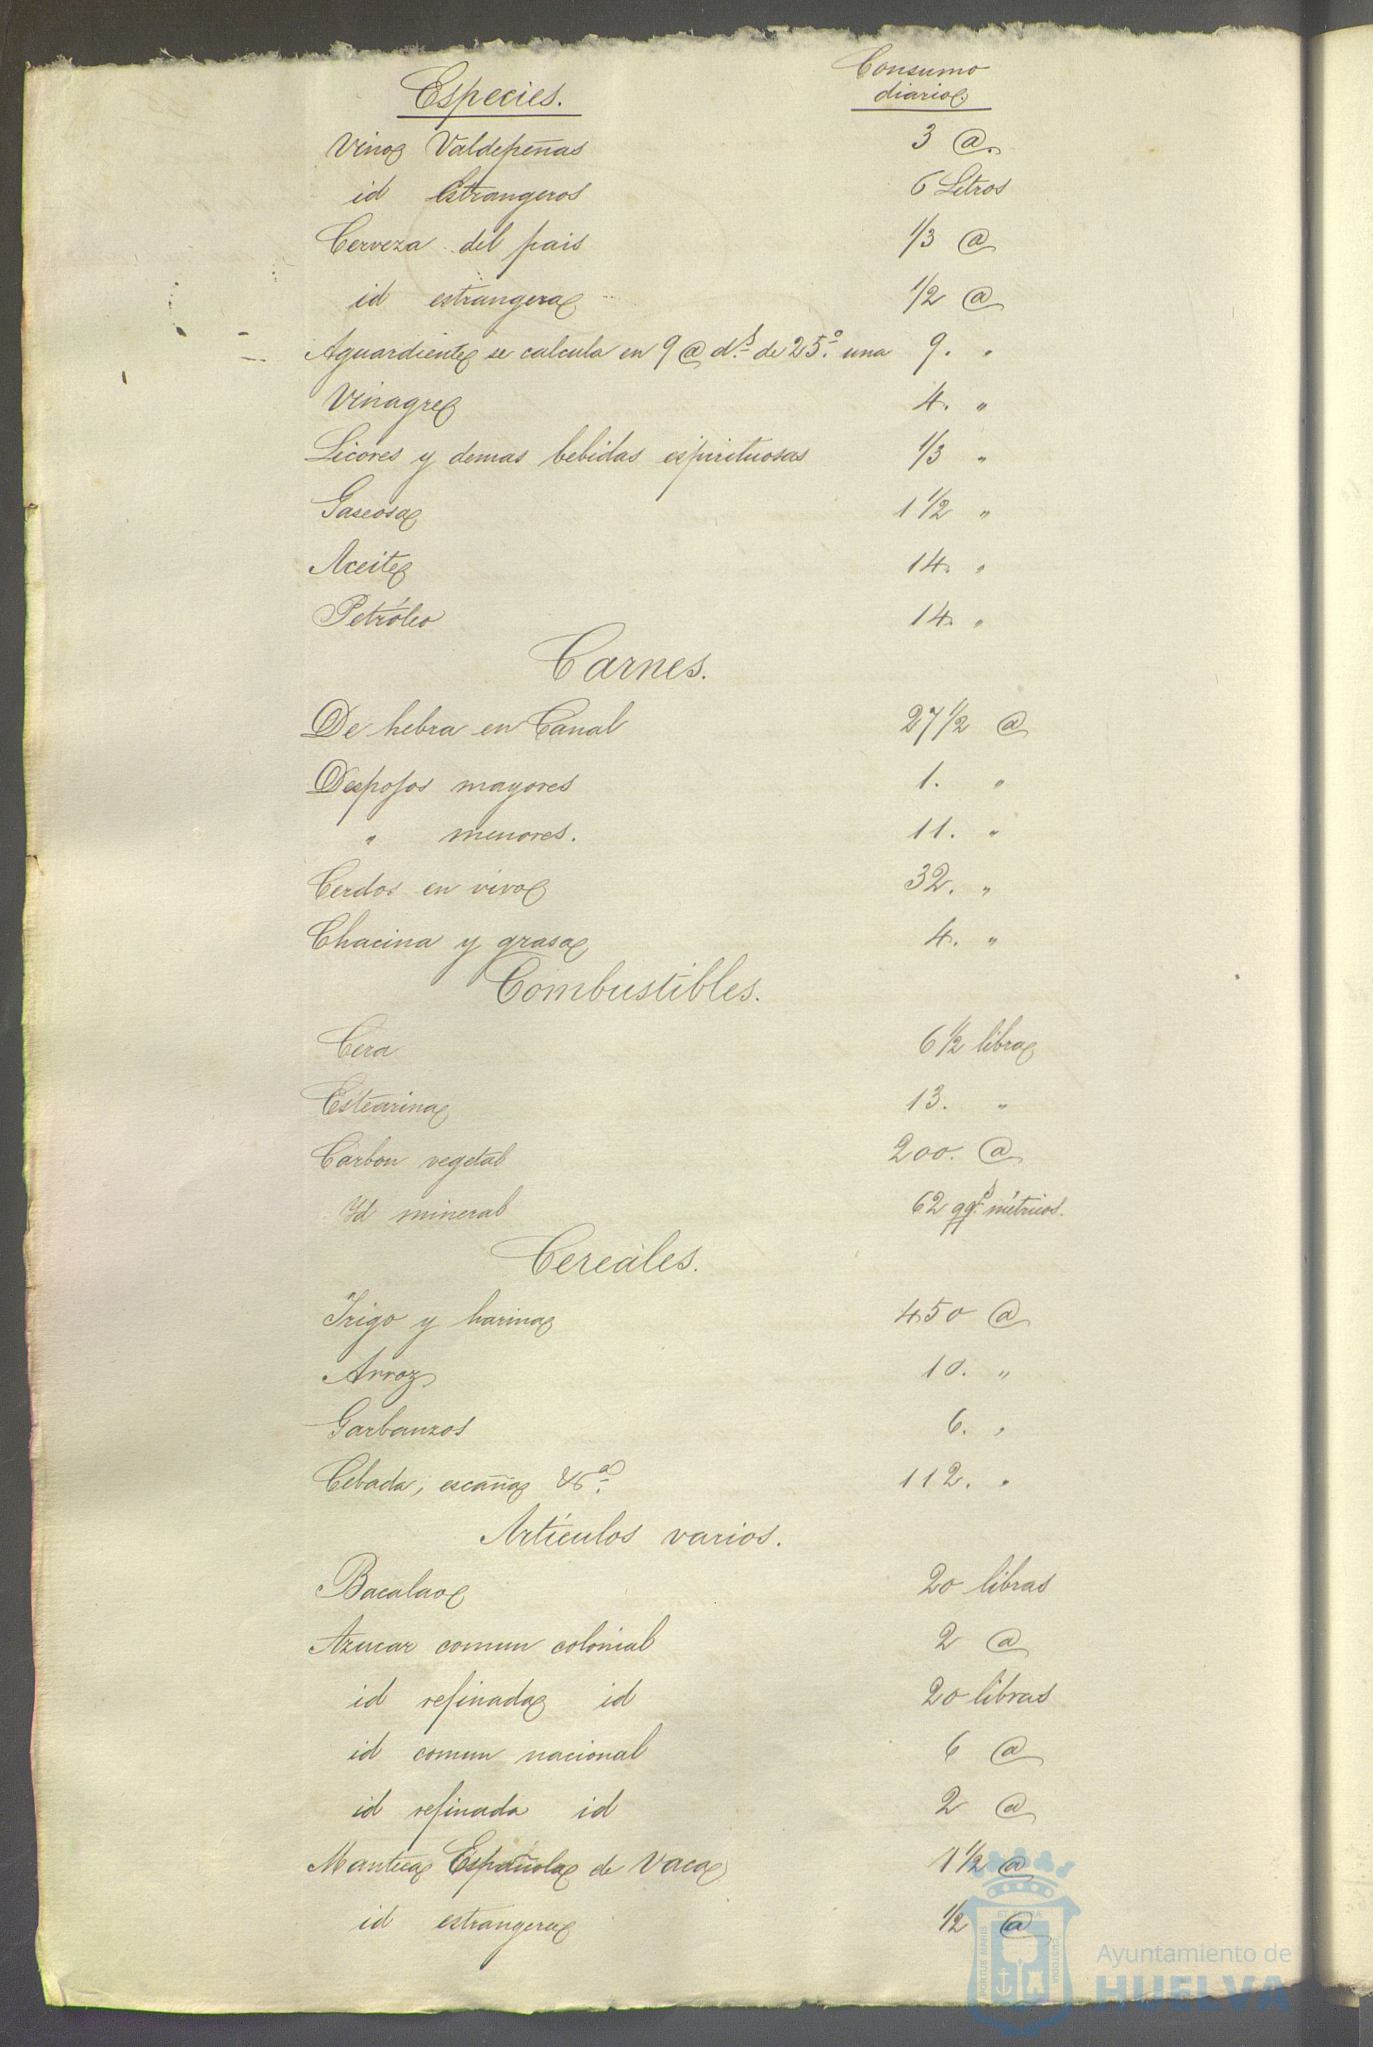 Especies. Consumo diario
Vino Valdepeñas 3 @
id Estrangeros 6 Litros
Cerveza del pais 1/3 @
id estrangera 1/2 @
Aguardiente se calcula en 9 @ d.s de 25.º una 9. "
Vinagre 4. "
Licores y demas bebidas espirituosas 1/3 "
Gaseosa 1 1/2 "
Aceite 14. "
Petróleo 14. "
Carnes.
De hebra en Canal 27 1/2 @
Despojos mayores 1. "
" menores. 11. "
Cerdos en vivo 32. "
Chacina y grasa 4. "
Combustibles.
Cera 6 1/2 libra
Estearina 13. "
Carbon vegetal 200. @
Yd mineral 62 qq.s métricos.
Cereales.
Trigo y harina 450 @
Arroz 10. "
Garbanzos 6. "
Cebada, escaña &.a 112. "
Artículos varios.
Bacalao 20 libras
Azucar comun colonial 2 @
id refinada id 20 libras
id comun nacional 6 @
id refinada id 2 @
Manteca Española de Vaca 1 1/2 @
id estrangera 1/2 @
PORTUS MARIS
CUSTODIA
Ayuntamiento de
HUELVA